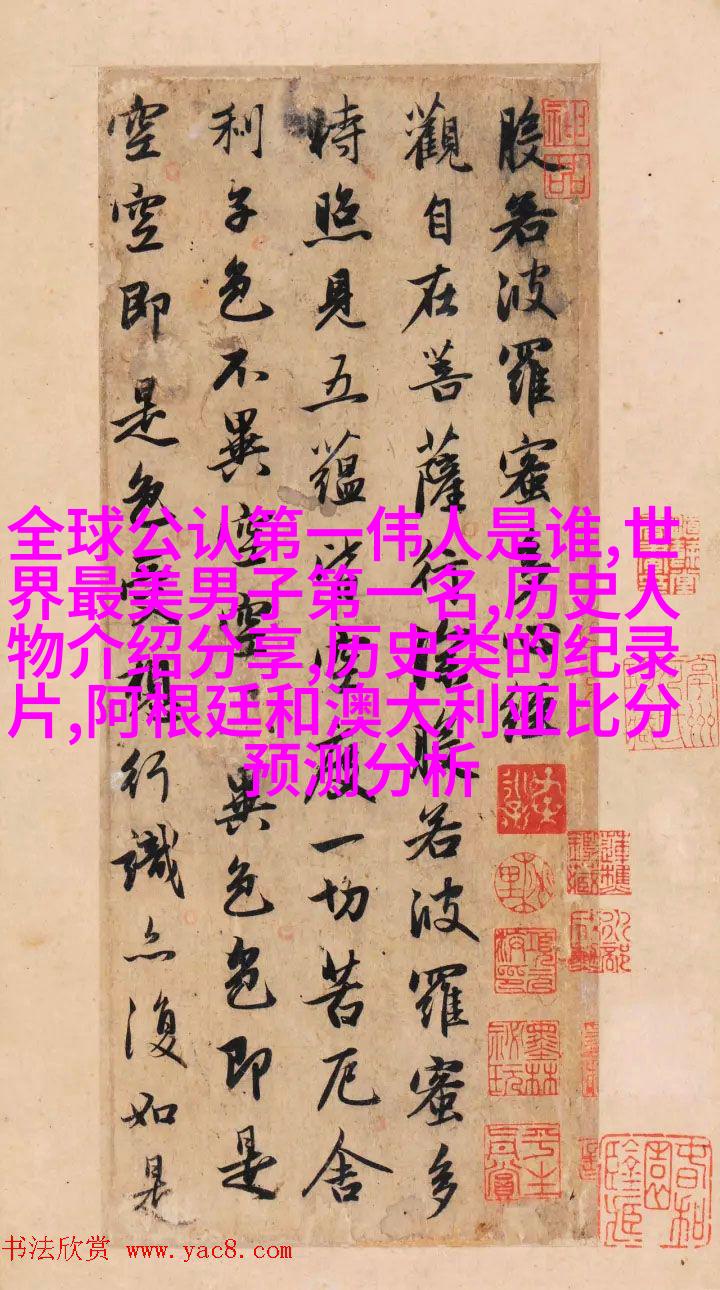 般若波羅蜜多心經
觀自在菩薩行深般若波羅蜜多
時照見五蘊皆空度一切苦厄舍
利子色不異空空不異色色即是
空空即是色受想行識亦復如是
神品
墨林
祕玩
全球公认第一伟人是谁,世
界最美男子第一名,历史人
物介绍分享,历史类的纪录
片,阿根廷和澳大利亚比分
预测分析
书法欣赏 www.yac8.com